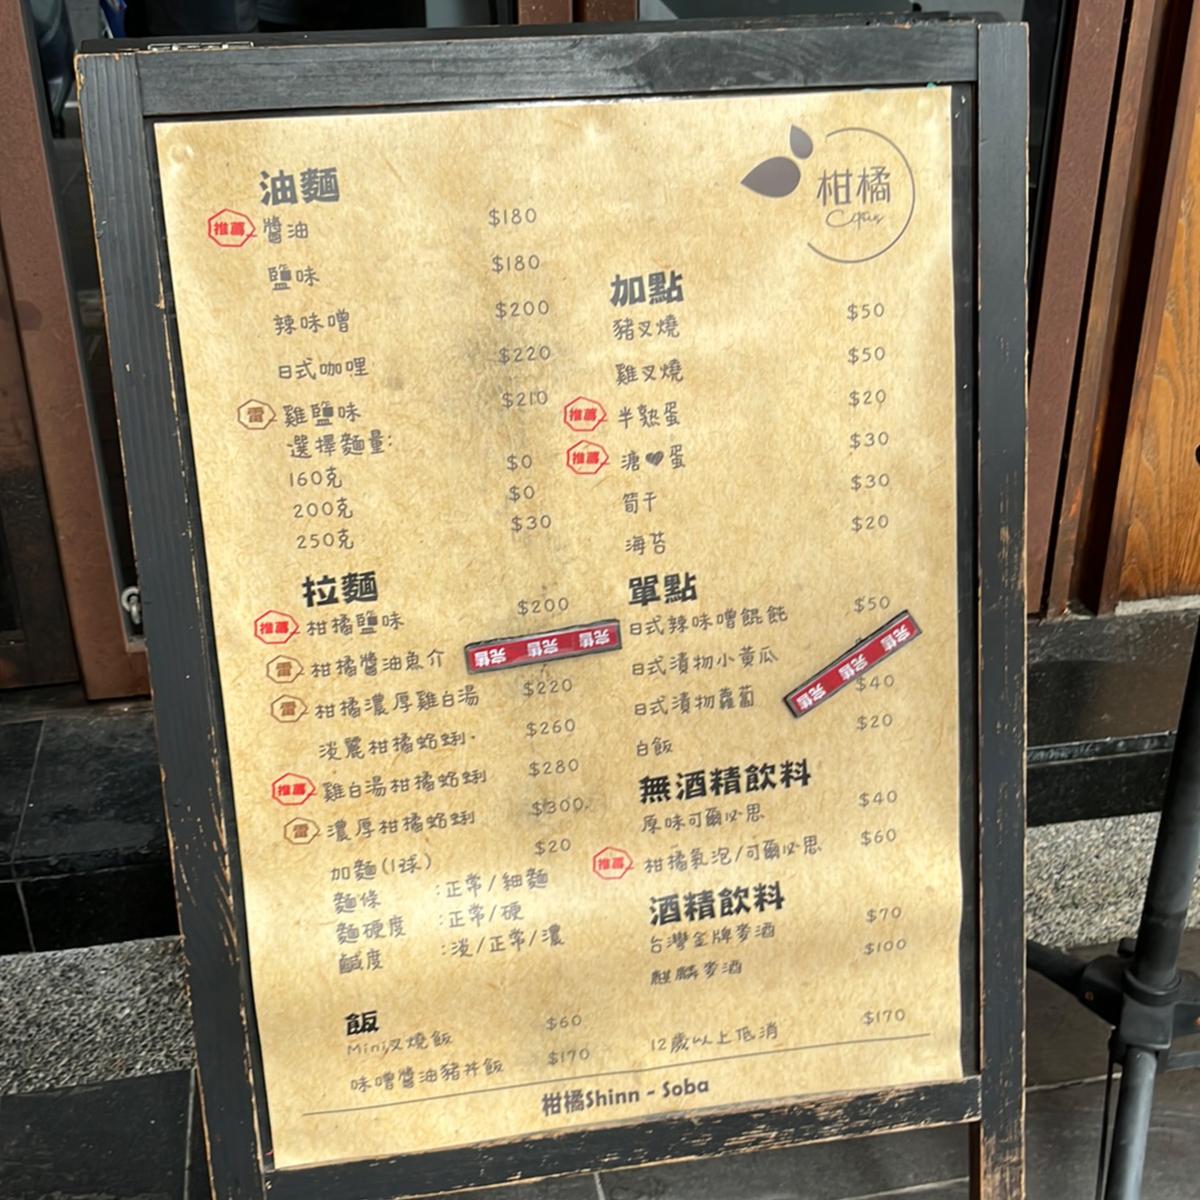 柑橘
Citrus
油麵
推薦 醬油 $180
鹽味 $180
辣味噌 $200
日式咖哩 $220
雷 雞鹽味 $210
選擇麵量:
160克 $0
200克 $0
250克 $30
拉麵
推薦 柑橘鹽味 $200
雷 柑橘醬油魚介 完售 完售 完售
雷 柑橘濃厚雞白湯 $220
淡麗柑橘蛤蜊 $260
推薦 雞白湯柑橘蛤蜊 $280
雷 濃厚柑橘蛤蜊 $300
加麵(1球) $20
麵條 :正常/細麵
麵硬度 :正常/硬
鹹度 :淡/正常/濃
飯
Mini叉燒飯 $60
味噌醬油豬丼飯 $170
加點
豬叉燒 $50
雞叉燒 $50
推薦 半熟蛋 $20
推薦 溏♥蛋 $30
筍干 $30
海苔 $20
單點
日式辣味噌餛飩 $50
日式漬物小黃瓜 完售 完售 完售
日式漬物蘿蔔 $40
白飯 $20
無酒精飲料
原味可爾必思 $40
推薦 柑橘氣泡/可爾必思 $60
酒精飲料
台灣金牌麥酒 $70
麒麟麥酒 $100
12歲以上低消 $170
柑橘Shinn - Soba